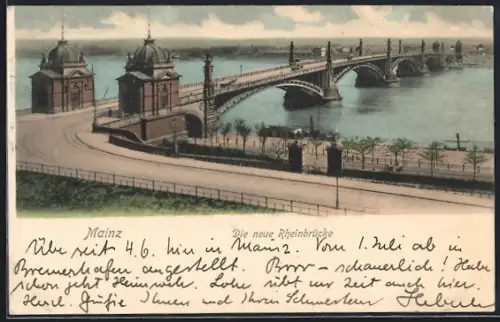 Mainz Die neue Rheinbrücke
Übe seit 4.6. hier in Mainz. Vom 1. Juli ab in
Bremerhafen angestellt. Brrr – schauerlich! Habe
schon jetzt Heimweh. Lohe übt zur Zeit auch hier.
Herzl. Grüße Ihnen und Ihren Schwestern